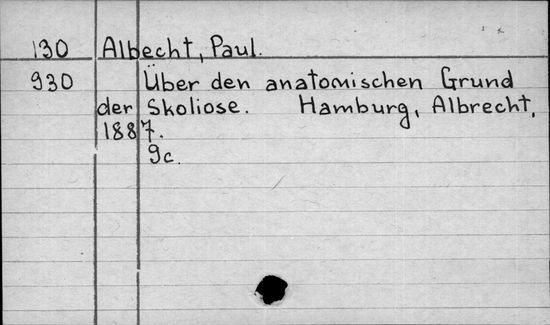 130 Albecht, Paul.
930 Über den anatomischen Grund
der Skoliose. Hamburg, Albrecht,
1887.
9c.